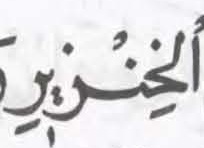 ألخِنْزِيرِ